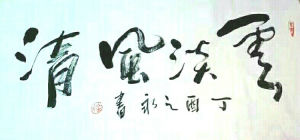 雲淡風清
丁酉之永書